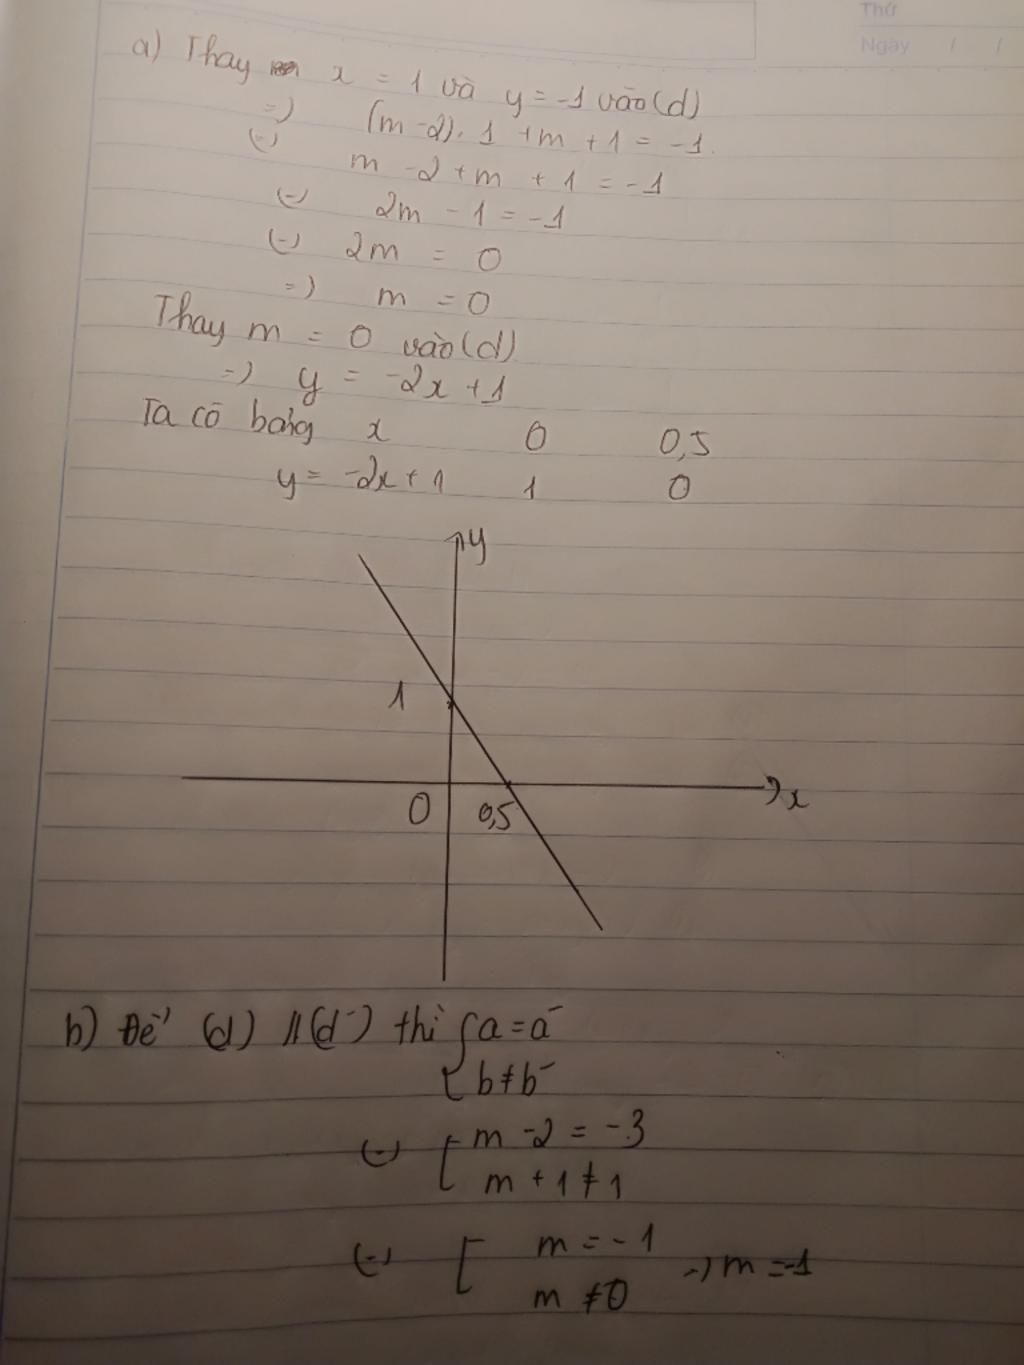 Thứ
Ngày / /
a) Thay x = 1 và y = -1 vào (d)
=) (m -2). 1 + m + 1 = -1.
(-) m -2 + m + 1 = -1
(-) 2m - 1 = -1
(-) 2m = 0
=) m = 0
Thay m = 0 vào (d)
=) y = -2x + 1
Ta có bảng x 0 0,5
y = -2x + 1 1 0
y
1
0 0,5 x
b) Để (d) // (d') thì { a = a'
b ≠ b'
(-) [ m -2 = -3
m + 1 ≠ 1
(-) [ m = -1 =) m = -1
m ≠ 0